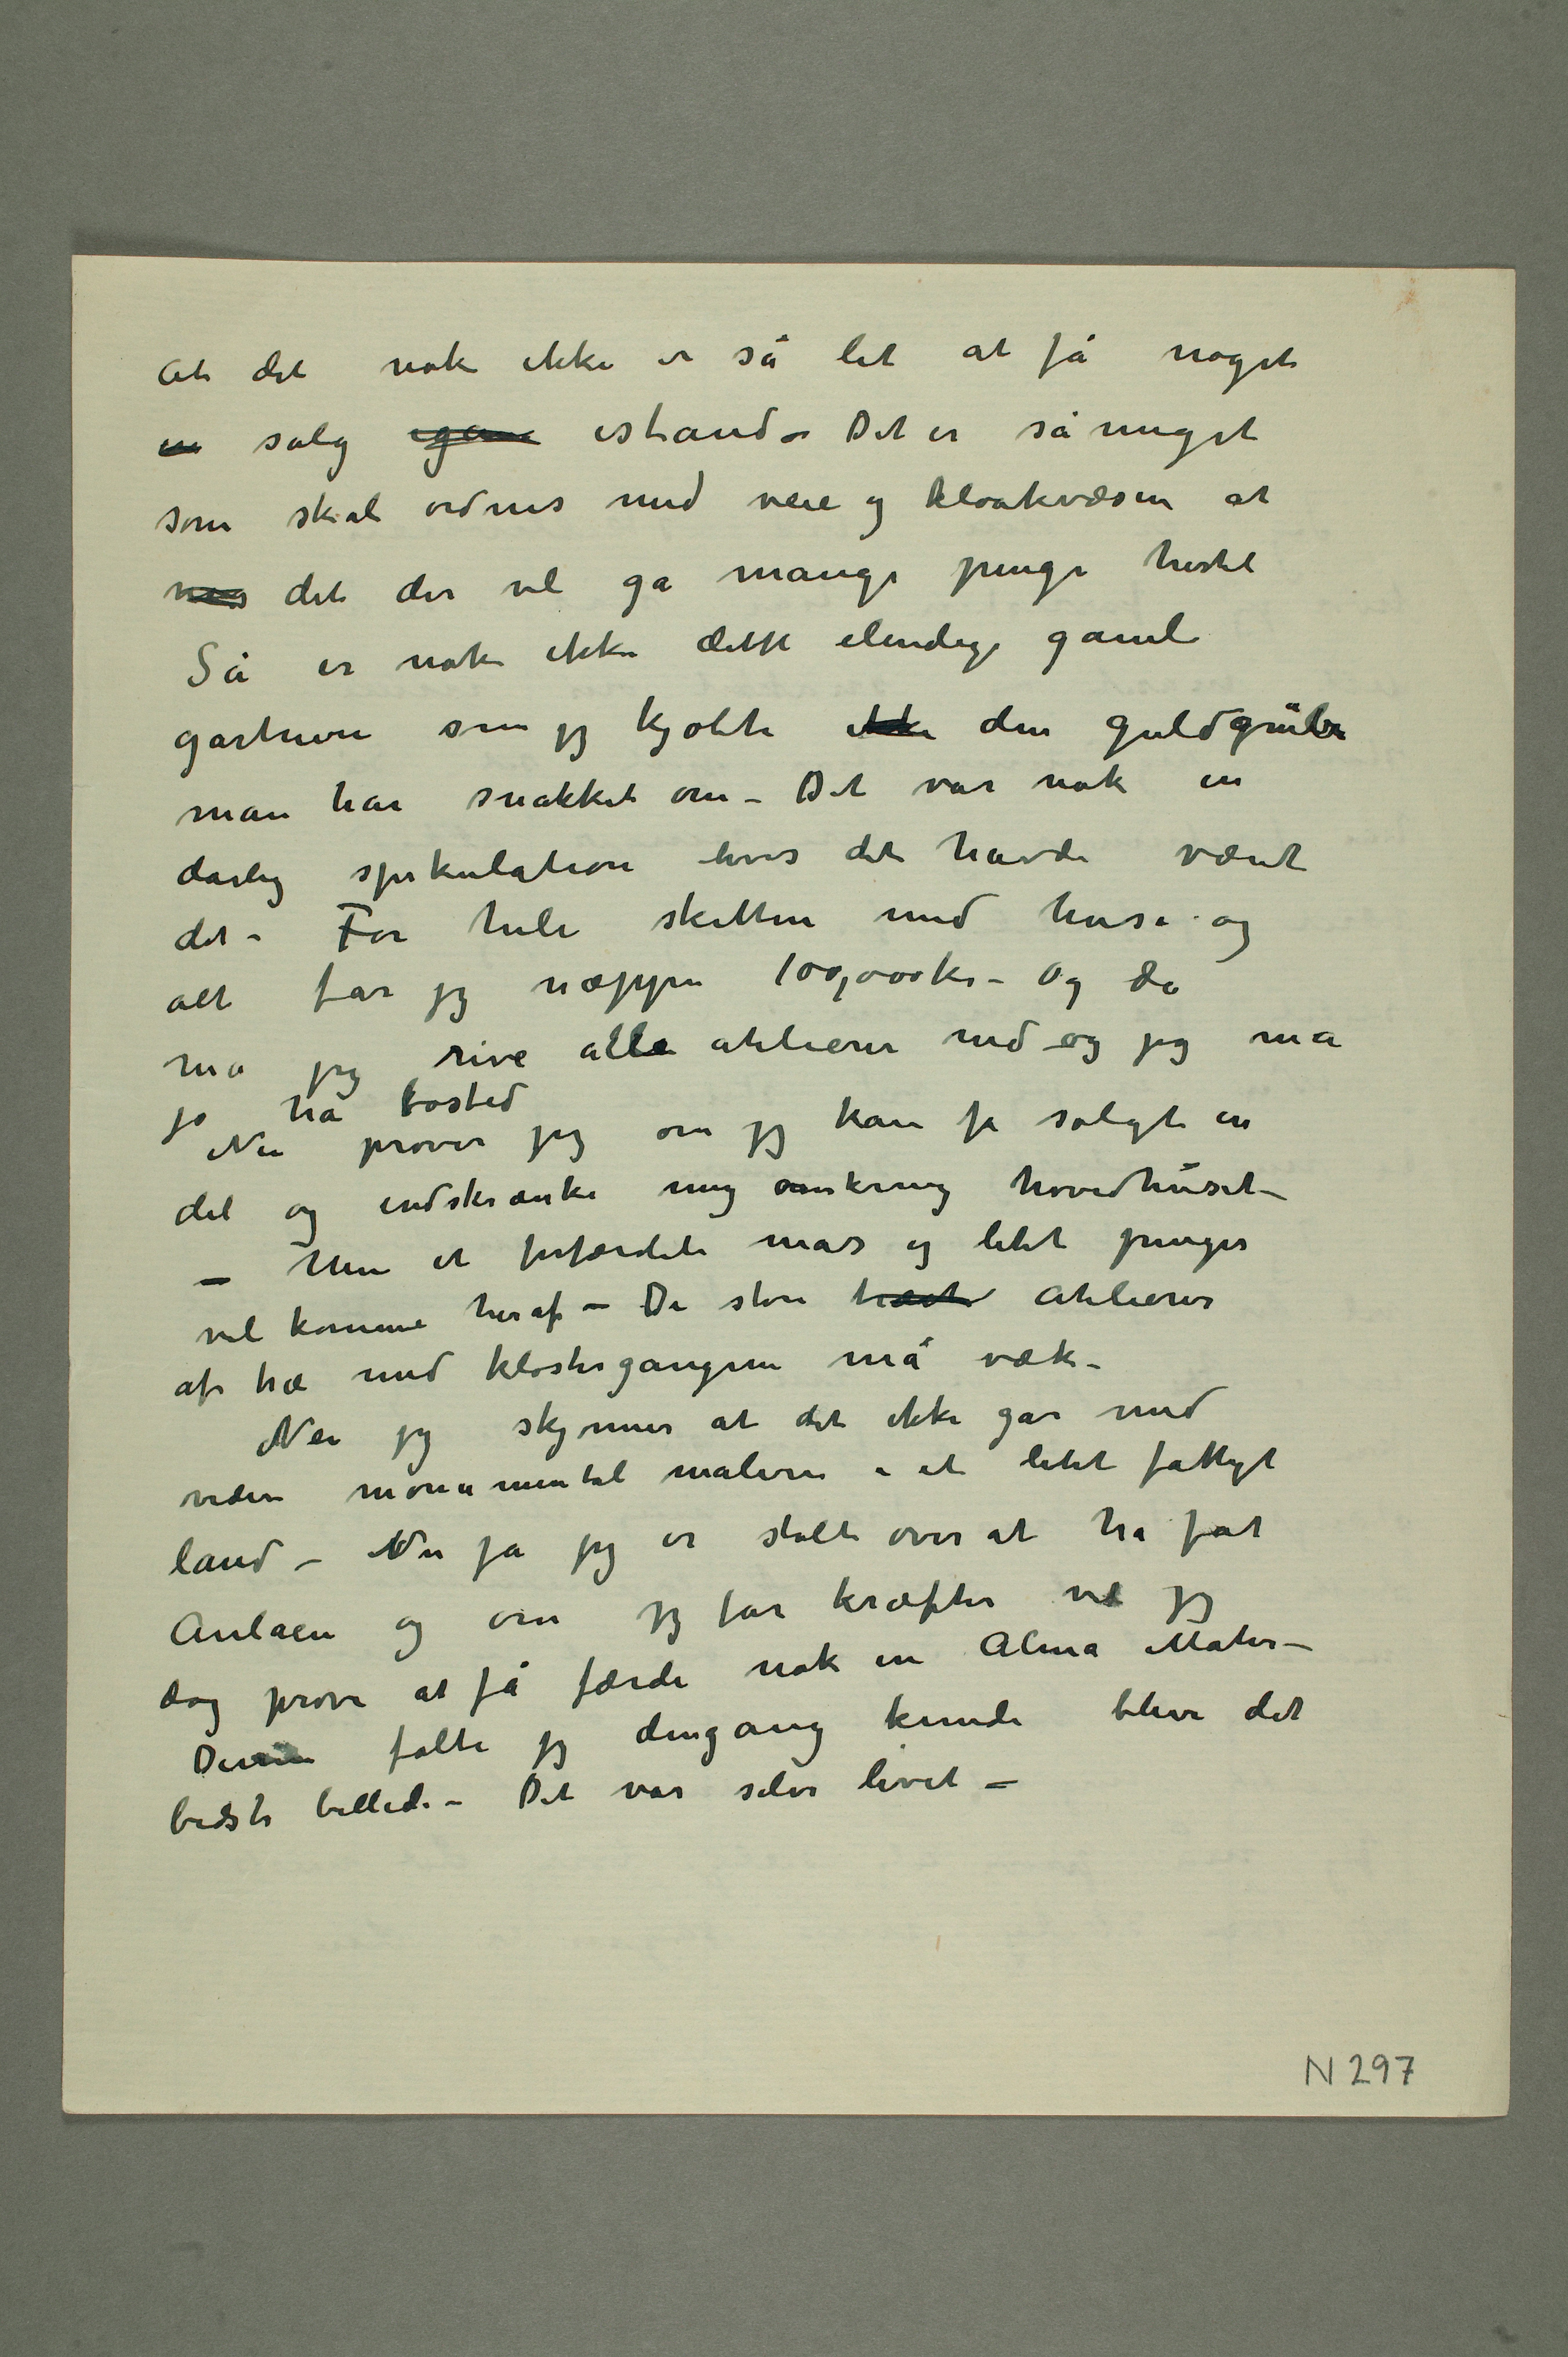 At det nok ikke er så let at få noget
en salg igan istand – Det er så meget
som skal ordnes med veie og kloakvæsen at
det der vil gå mange penge hertil
Så er nok ikke dette elendige gamle
gartneri som jeg kjøbte ikke den guldgrube
man har snakket om – Det var nok en
dårlig spekulation hvis det havde vært
det – For hele skitten med huse og
alt får jeg næppe 100,000 kr – Og da
må jeg rive alle atelierer ned og jeg må
jo ha bosted
Nu prøver jeg om jeg kan få solgt en
del og indskrænke mig omkring hovedhuset –
– Men et forfærdeli mas og litet penger
vil komme heraf – De store træat Atelierer
af træ med klostergangene må væk –
Nei jeg skjønner at det ikke går med
videre monumental maleri i et litet fattigt
land – Nu ja jeg er stolt over at ha fåt
Aulaen og om jeg får kræfter vil jeg
dog prøve at få færdi nok en Alma Mater –
Denne følte jeg dengang kunde blive det
bedste billede – Det var selve livet –
N 297